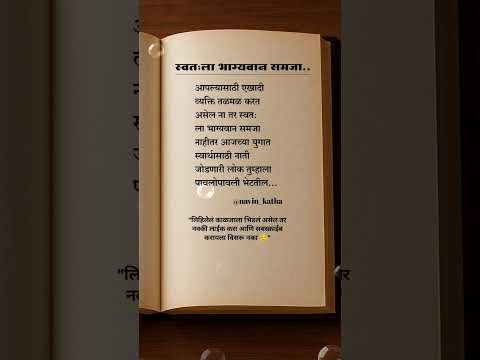 स्वतःला भाग्यवान समजा..
आपल्यासाठी एखादी
व्यक्ति तळमळ करत
असेल ना तर स्वतः
ला भाग्यवान समजा
नाहीतर आजच्या युगात
स्वार्थासाठी नाती
जोडणारी लोक तुम्हाला
पावलोपावली भेटतील...
@navin_katha
"लिहिलेलं काळजाला भिडलं असेल तर
नक्की लाईक करा आणि सबस्क्राईब
करायला विसरू नका 😊"